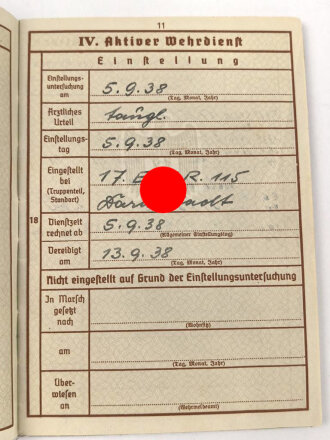 11
IV. Aktiver Wehrdienst
Einstellung
Einstellungs-
untersuchung
am
5.9.38
(Tag, Monat, Jahr)
Ärztliches
Urteil
taugl.
Einstellungs-
tag
5.9.38
(Tag, Monat, Jahr)
Eingestellt
bei
(Truppenteil,
Standort)
17. R. 115
18
Dienstzeit
rechnet ab
5.9.38
(Allgemeiner Einstellungstag)
Vereidigt
am
13.9.38
(Tag, Monat, Jahr)
Nicht eingestellt auf Grund der Einstellungsuntersuchung
In Marsch
gesetzt
nach
(Wohnsitz)
am
(Tag, Monat, Jahr)
Über-
wiesen
an
(Wehrmeldeamt)